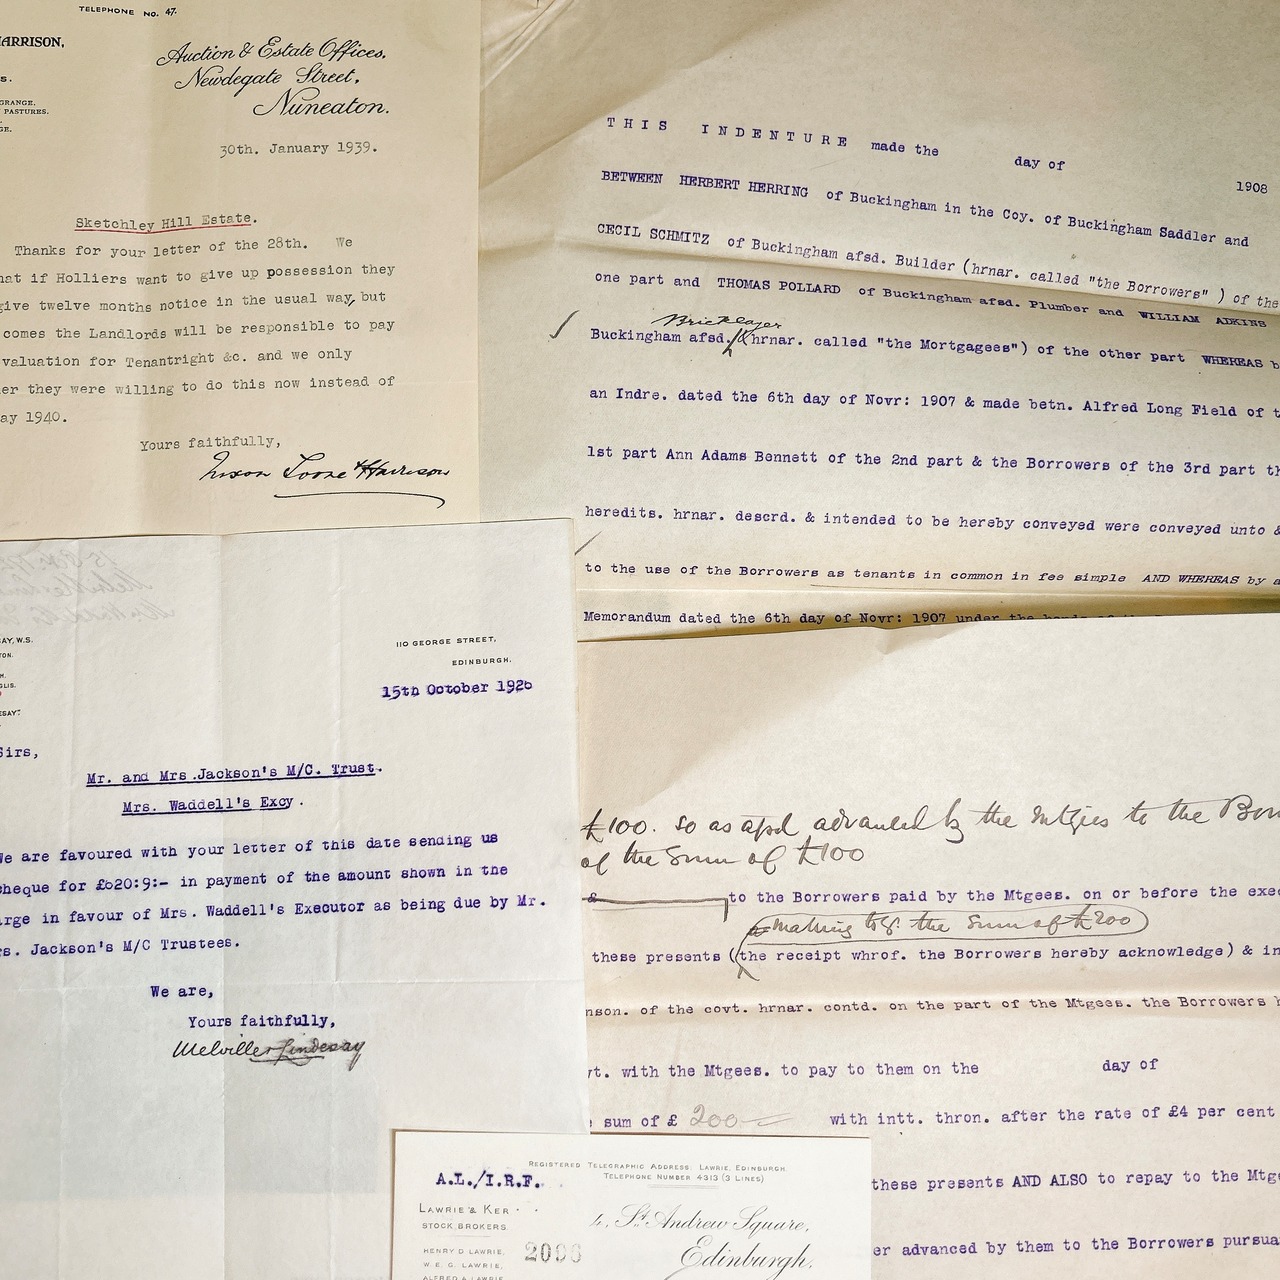 TELEPHONE NO. 47.
HARRISON,
Auction & Estate Offices,
Newdegate Street,
Nuneaton.
S.
GRANGE.
PASTURES.
GE.
30th. January 1939.
Sketchley Hill Estate.
Thanks for your letter of the 28th. We
hat if Holliers want to give up possession they
give twelve months notice in the usual way, but
comes the Landlords will be responsible to pay
valuation for Tenantright &c. and we only
er they were willing to do this now instead of
ay 1940.
Yours faithfully,
Nixon Toone & Harrison
THIS INDENTURE made the day of 1908
BETWEEN HERBERT HERRING of Buckingham in the Coy. of Buckingham Saddler and
CECIL SCHMITZ of Buckingham afsd. Builder (hrnar. called "the Borrowers" ) of the
one part and THOMAS POLLARD of Buckingham afsd. Plumber and WILLIAM ADKINS
Bricklayer
Buckingham afsd. (hrnar. called "the Mortgagees") of the other part WHEREAS b
an Indre. dated the 6th day of Novr: 1907 & made betn. Alfred Long Field of t
1st part Ann Adams Bennett of the 2nd part & the Borrowers of the 3rd part th
heredits. hrnar. descrd. & intended to be hereby conveyed were conveyed unto &
to the use of the Borrowers as tenants in common in fee simple AND WHEREAS by a
Memorandum dated the 6th day of Novr: 1907 under the hands of the
SAY, W.S.
TON.
H.
GLIS.
ESAY".
110 GEORGE STREET,
EDINBURGH.
15th October 1926
Sirs,
Mr. and Mrs. Jackson's M/C. Trust.
Mrs. Waddell's Excy.
We are favoured with your letter of this date sending us
cheque for £620:9:- in payment of the amount shown in the
arge in favour of Mrs. Waddell's Executor as being due by Mr.
rs. Jackson's M/C Trustees.
We are,
Yours faithfully,
Melville & Lindesay
£100. so as afsd advanced by the Mtgees to the Borr
of the sum of £100
& to the Borrowers paid by the Mtgees. on or before the exec
making tog. the sum of £200
these presents (the receipt whrof. the Borrowers hereby acknowledge) & in
nson. of the covt. hrnar. contd. on the part of the Mtgees. the Borrowers h
vt. with the Mtgees. to pay to them on the day of
sum of £ 200 with intt. thron. after the rate of £4 per cent
these presents AND ALSO to repay to the Mtge
er advanced by them to the Borrowers pursua
REGISTERED TELEGRAPHIC ADDRESS, LAWRIE, EDINBURGH.
TELEPHONE NUMBER 4313 (3 LINES)
A.L./I.R.F.
LAWRIE & KER
STOCK BROKERS.
4, St. Andrew Square,
Edinburgh.
HENRY D LAWRIE,
W. E. G. LAWRIE,
ALFRED A LAWRIE